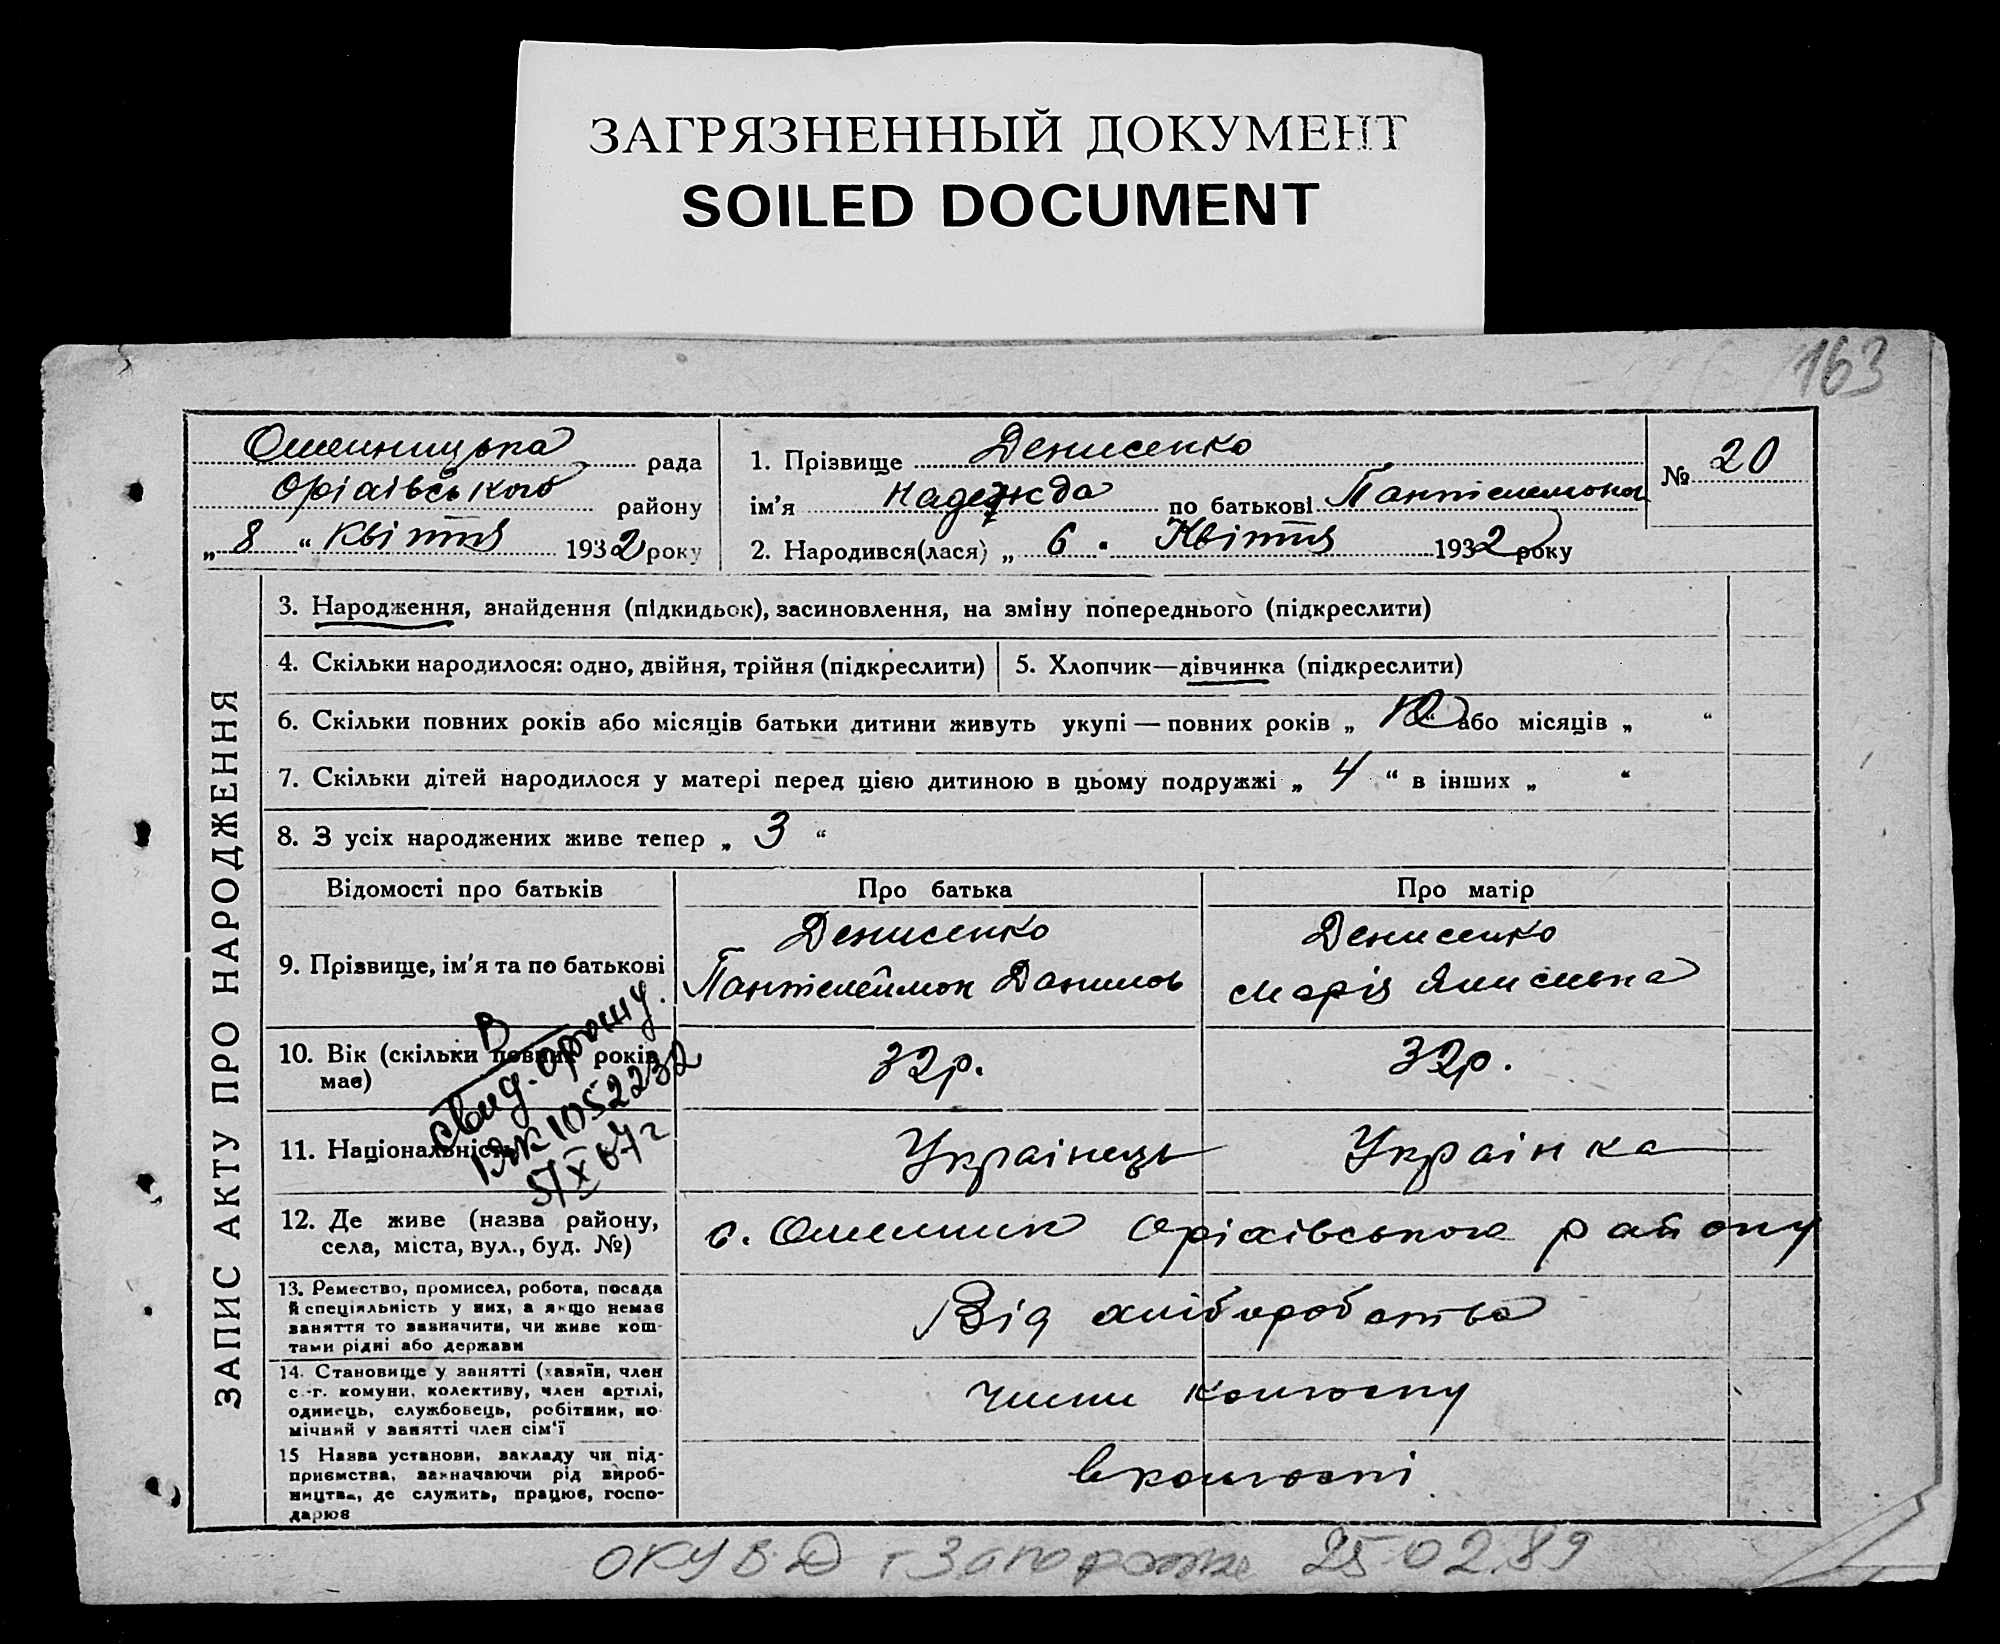 ЗАГРЯЗНЕННЫЙ ДОКУМЕНТ
SOILED DOCUMENT
163
Омельницька рада
Оріхівського району
„ 8 “ Квітня 1932 року
1. Прізвище Денисенко
ім'я Надежда по батькові Пантілемонов
2. Народився(лася) „ 6 " Квітня 1932 року
№ 20
ЗАПИС АКТУ ПРО НАРОДЖЕННЯ
3. Народження, знайдення (підкидьок), засиновлення, на зміну попереднього (підкреслити)
4. Скільки народилося: одно, двійня, трійня (підкреслити)
5. Хлопчик—дівчинка (підкреслити)
6. Скільки повних років або місяців батьки дитини живуть укупі — повних років „ 10 “ або місяців „ “
7. Скільки дітей народилося у матері перед цією дитиною в цьому подружжі „ 4 “ в інших „ “
8. З усіх народжених живе тепер „ 3 “
Відомості про батьків
Про батька
Про матір
9. Прізвище, ім'я та по батькові
Денисенко
Пантілеймон Данилов
Денисенко
Марія
10. Вік (скільки повних років має)
32р.
32р.
В
свид.
1052232
5/X 67г
11. Національність
Українець
Українка
12. Де живе (назва району,
села, міста, вул., буд. №)
с. Омельник Оріхівського району
13. Ремество, промисел, робота, посада
й спеціяльність у них, а якщо немає
заняття то зазначити, чи живе кош-
тами рідні або держави
Від хліборобства
14. Становище у занятті (хазяїн, член
с.-г. комуни, колективу, член артілі,
одинець, службовець, робітник, по-
мічний у занятті член сім'ї
члени колгоспу
15 Назва установи, закладу чи під-
приємства, зазначаючи рід вироб-
ництва, де служить, працює, госпо-
дарює
в колгоспі
г Запорожье 25 02.89